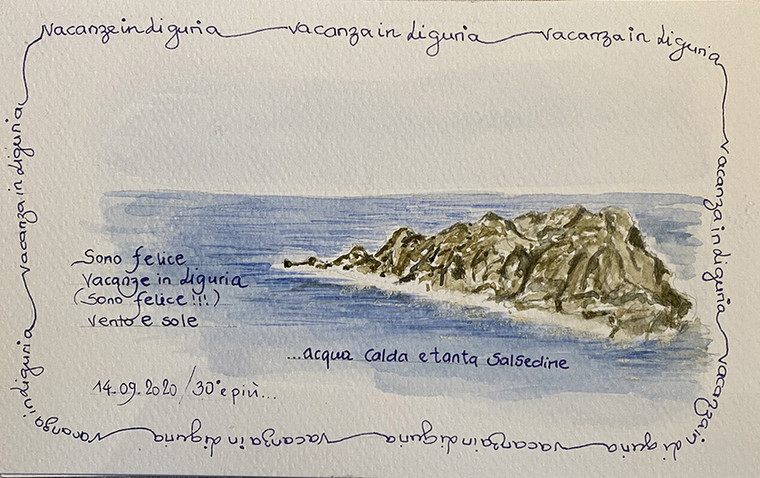 Vacanze in Liguria vacanza in Liguria vacanza in Liguria
vacanza in Liguria vacanza in Liguria
vacanza in Liguria vacanza in Liguria vacanza in Liguria vacanza in Liguria
vacanza in Liguria vacanza in Liguria
Sono felice
vacanze in Liguria
(Sono felice!!!)
vento e sole
...acqua calda e tanta salsedine
14.09.2020/30° e più...